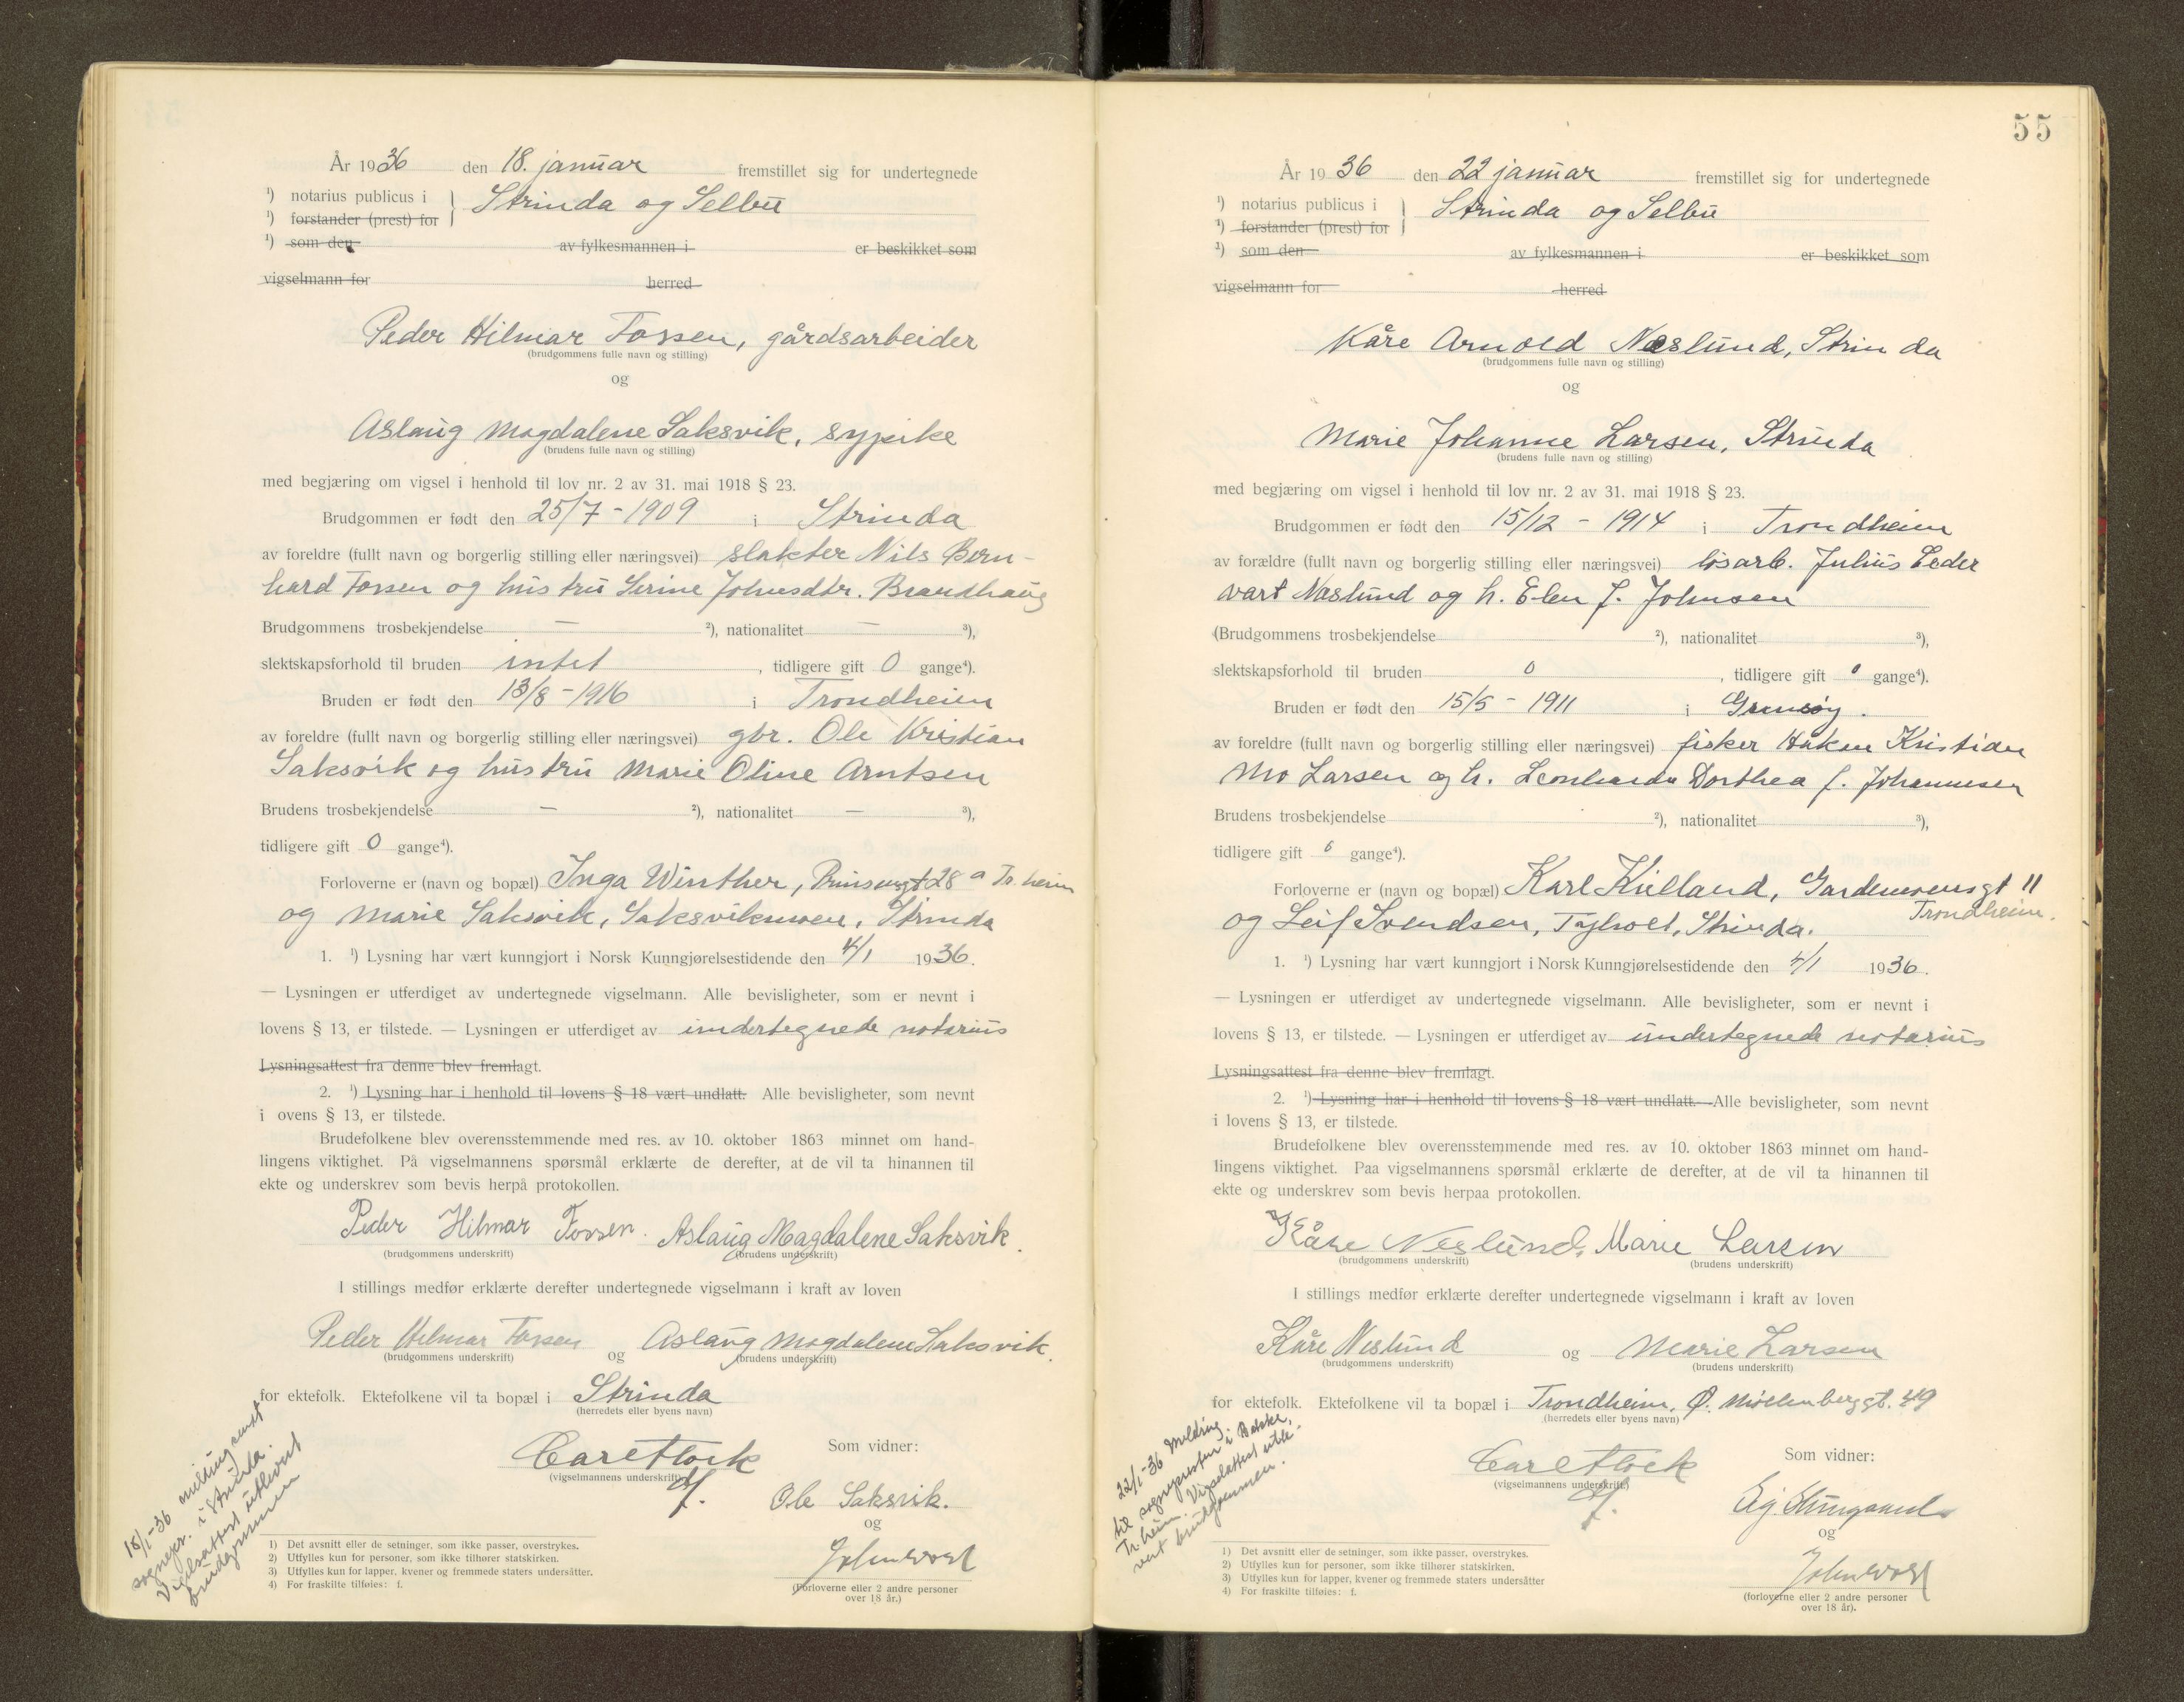 År 1936 den 18. januar fremstillet sig for undertegnede
¹) notarius publicus i } Strinda og Selbu
¹) forstander (prest) for
¹) som den av fylkesmannen i er beskikket som
vigselmann for herred
Peder Hilmar Fossen, gårdsarbeider
(brudgommens fulle navn og stilling)
og
Aslaug Magdalene Saksvik, sypike
(brudens fulle navn og stilling)
med begjæring om vigsel i henhold til lov nr. 2 av 31. mai 1918 § 23.
Brudgommen er født den 25/7 - 1909 i Strinda
av foreldre (fullt navn og borgerlig stilling eller næringsvei) slakter Nils Bern-
hard Fossen og hustru Serine Johnsdtr. Brandhaug
Brudgommens trosbekjendelse — ²), nationalitet — ³),
slektskapsforhold til bruden intet, tidligere gift 0 gange⁴).
Bruden er født den 13/8 - 1916 i Trondheim
av foreldre (fullt navn og borgerlig stilling eller næringsvei) gbr. Ole Kristian
Saksvik og hustru Marie Oline Arntsen
Brudens trosbekjendelse — ²), nationalitet — ³),
tidligere gift 0 gange⁴).
Forloverne er (navn og bopæl) Inga Winther, Prinsensgt 28 a Tr.heim
og Marie Saksvik, Saksvikmoen, Strinda
1. ¹) Lysning har vært kunngjort i Norsk Kunngjørelsestidende den 4/1 1936.
— Lysningen er utferdiget av undertegnede vigselmann. Alle bevisligheter, som er nevnt i
lovens § 13, er tilstede. — Lysningen er utferdiget av undertegnede notarius
Lysningsattest fra denne blev fremlagt.
2. ¹) Lysning har i henhold til lovens § 18 vært undlatt. Alle bevisligheter, som nevnt
i ovens § 13, er tilstede.
Brudefolkene blev overensstemmende med res. av 10. oktober 1863 minnet om hand-
lingens viktighet. På vigselmannens spørsmål erklærte de derefter, at de vil ta hinannen til
ekte og underskrev som bevis herpå protokollen.
Peder Hilmar Fossen. Aslaug Magdalene Saksvik.
(brudgommens underskrift) (brudens underskrift)
I stillings medfør erklærte derefter undertegnede vigselmann i kraft av loven
Peder Hilmar Fossen og Aslaug Magdalene Saksvik.
(brudgommens underskrift) (brudens underskrift)
for ektefolk. Ektefolkene vil ta bopæl i Strinda
(herredets eller byens navn)
Som vidner:
(vigselmannens underskrift)
Ole Saksvik.
og
(Forloverne eller 2 andre personer
over 18 år.)
18/1-36 melding sendt
sognepr. i Strinda.
Vigselsattest utlevert
brudgommen
1) Det avsnitt eller de setninger, som ikke passer, overstrykes.
2) Utfylles kun for personer, som ikke tilhører statskirken.
3) Utfylles kun for lapper, kvener og fremmede staters undersåtter.
4) For fraskilte tilføies: f.
55
År 1936 den 22 januar fremstillet sig for undertegnede
¹) notarius publicus i } Strinda og Selbu
¹) forstander (prest) for
¹) som den av fylkesmannen i er beskikket som
vigselmann for herred
Kåre Arnold Næslund, Strinda
(brudgommens fulle navn og stilling)
og
Marie Johanne Larsen, Strinda
(brudens fulle navn og stilling)
med begjæring om vigsel i henhold til lov nr. 2 av 31. mai 1918 § 23.
Brudgommen er født den 15/12 - 1914 i Trondheim
av forældre (fullt navn og borgerlig stilling eller næringsvei) løsarb. Julius Eeder
vart Næslund og h. Elen f. Johnsen
(Brudgommens trosbekjendelse ²), nationalitet ³),
slektskapsforhold til bruden 0, tidligere gift 0 gange⁴).
Bruden er født den 15/5 - 1911 i Gimsøy.
av foreldre (fullt navn og borgerlig stilling eller næringsvei) fisker Håken Kristian
Mo Larsen og h. Leonharda Dorthea f. Johannesen
Brudens trosbekjendelse ²), nationalitet ³),
tidligere gift 0 gange⁴).
Forloverne er (navn og bopæl) Karl Kielland, Gardemoensgt 11
Trondheim.
og Leif Svendsen, Tyholt, Strinda.
1. ¹) Lysning har vært kunngjort i Norsk Kunngjørelsestidende den 4/1 1936.
— Lysningen er utferdiget av undertegnede vigselmann. Alle bevisligheter, som er nevnt i
lovens § 13, er tilstede. — Lysningen er utferdiget av undertegnede notarius
Lysningsattest fra denne blev fremlagt.
2. ¹) Lysning har i henhold til lovens § 18 vært undlatt. Alle bevisligheter, som nevnt
i lovens § 13, er tilstede.
Brudefolkene blev overensstemmende med res. av 10. oktober 1863 minnet om hand-
lingens viktighet. Paa vigselmannens spørsmål erklærte de derefter, at de vil ta hinannen til
ekte og underskrev som bevis herpaa protokollen.
Kåre Neslund, Marie Larsen
(brudgommens underskrift) (brudens underskrift)
I stillings medfør erklærte derefter undertegnede vigselmann i kraft av loven
Kåre Neslund og Marie Larsen
(brudgommens underskrift) (brudens underskrift)
for ektefolk. Ektefolkene vil ta bopæl i Trondheim, Ø. Møllenberggt. 49
(herredets eller byens navn)
Som vidner:
(vigselmannens underskrift)
og
(forloverne eller 2 andre personer
over 18 år).
22/1-36 melding
til sognepresten i Bakke,
Tr.heim. Vigselattest utle-
vert brudgommen.
1) Det avsnitt eller de setninger, som ikke passer, overstrykes.
2) Utfylles kun for personer, som ikke tilhører statskirken.
3) Utfylles kun for lapper, kvener og fremmede staters undersåtter
4) For fraskilte tilføies: f.